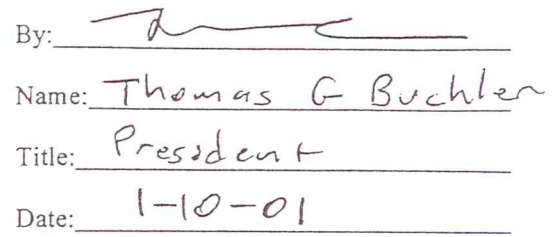 By:
Name: Thomas G Buchler
Title: President
Date: 1-10-01